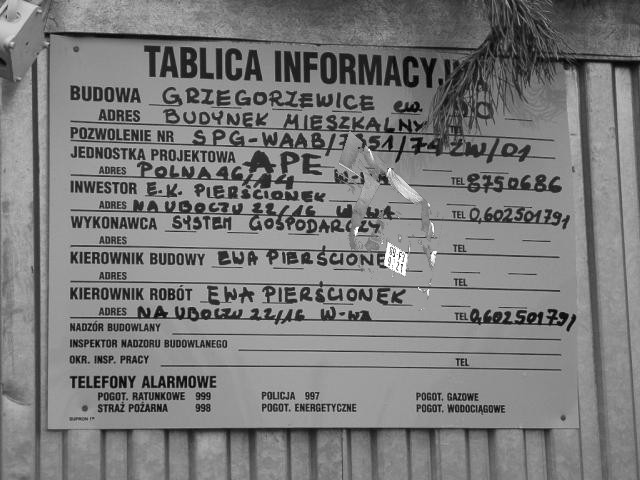 TABLICA INFORMACYJNA
BUDOWA GRZEGORZEWICE ew.
ADRES BUDYNEK MIESZKALNY
POZWOLENIE NR SPG-WAAB/7351/74 ZW/01
JEDNOSTKA PROJEKTOWA APE
ADRES POLNA 46/14 W-WA TEL 8750686
INWESTOR E.K. PIERŚCIONEK
ADRES NA UBOCZU 22/16 W-WA TEL 0,602501791
WYKONAWCA SYSTEM GOSPODARCZY
ADRES TEL
KIEROWNIK BUDOWY EWA PIERŚCIONEK
ADRES TEL
KIEROWNIK ROBÓT EWA PIERŚCIONEK
ADRES NA UBOCZU 22/16 W-wa TEL 0,602501791
NADZÓR BUDOWLANY
INSPEKTOR NADZORU BUDOWLANEGO
OKR. INSP. PRACY TEL
TELEFONY ALARMOWE
POGOT. RATUNKOWE 999 POLICJA 997 POGOT. GAZOWE
STRAŻ POŻARNA 998 POGOT. ENERGETYCZNE POGOT. WODOCIĄGOWE